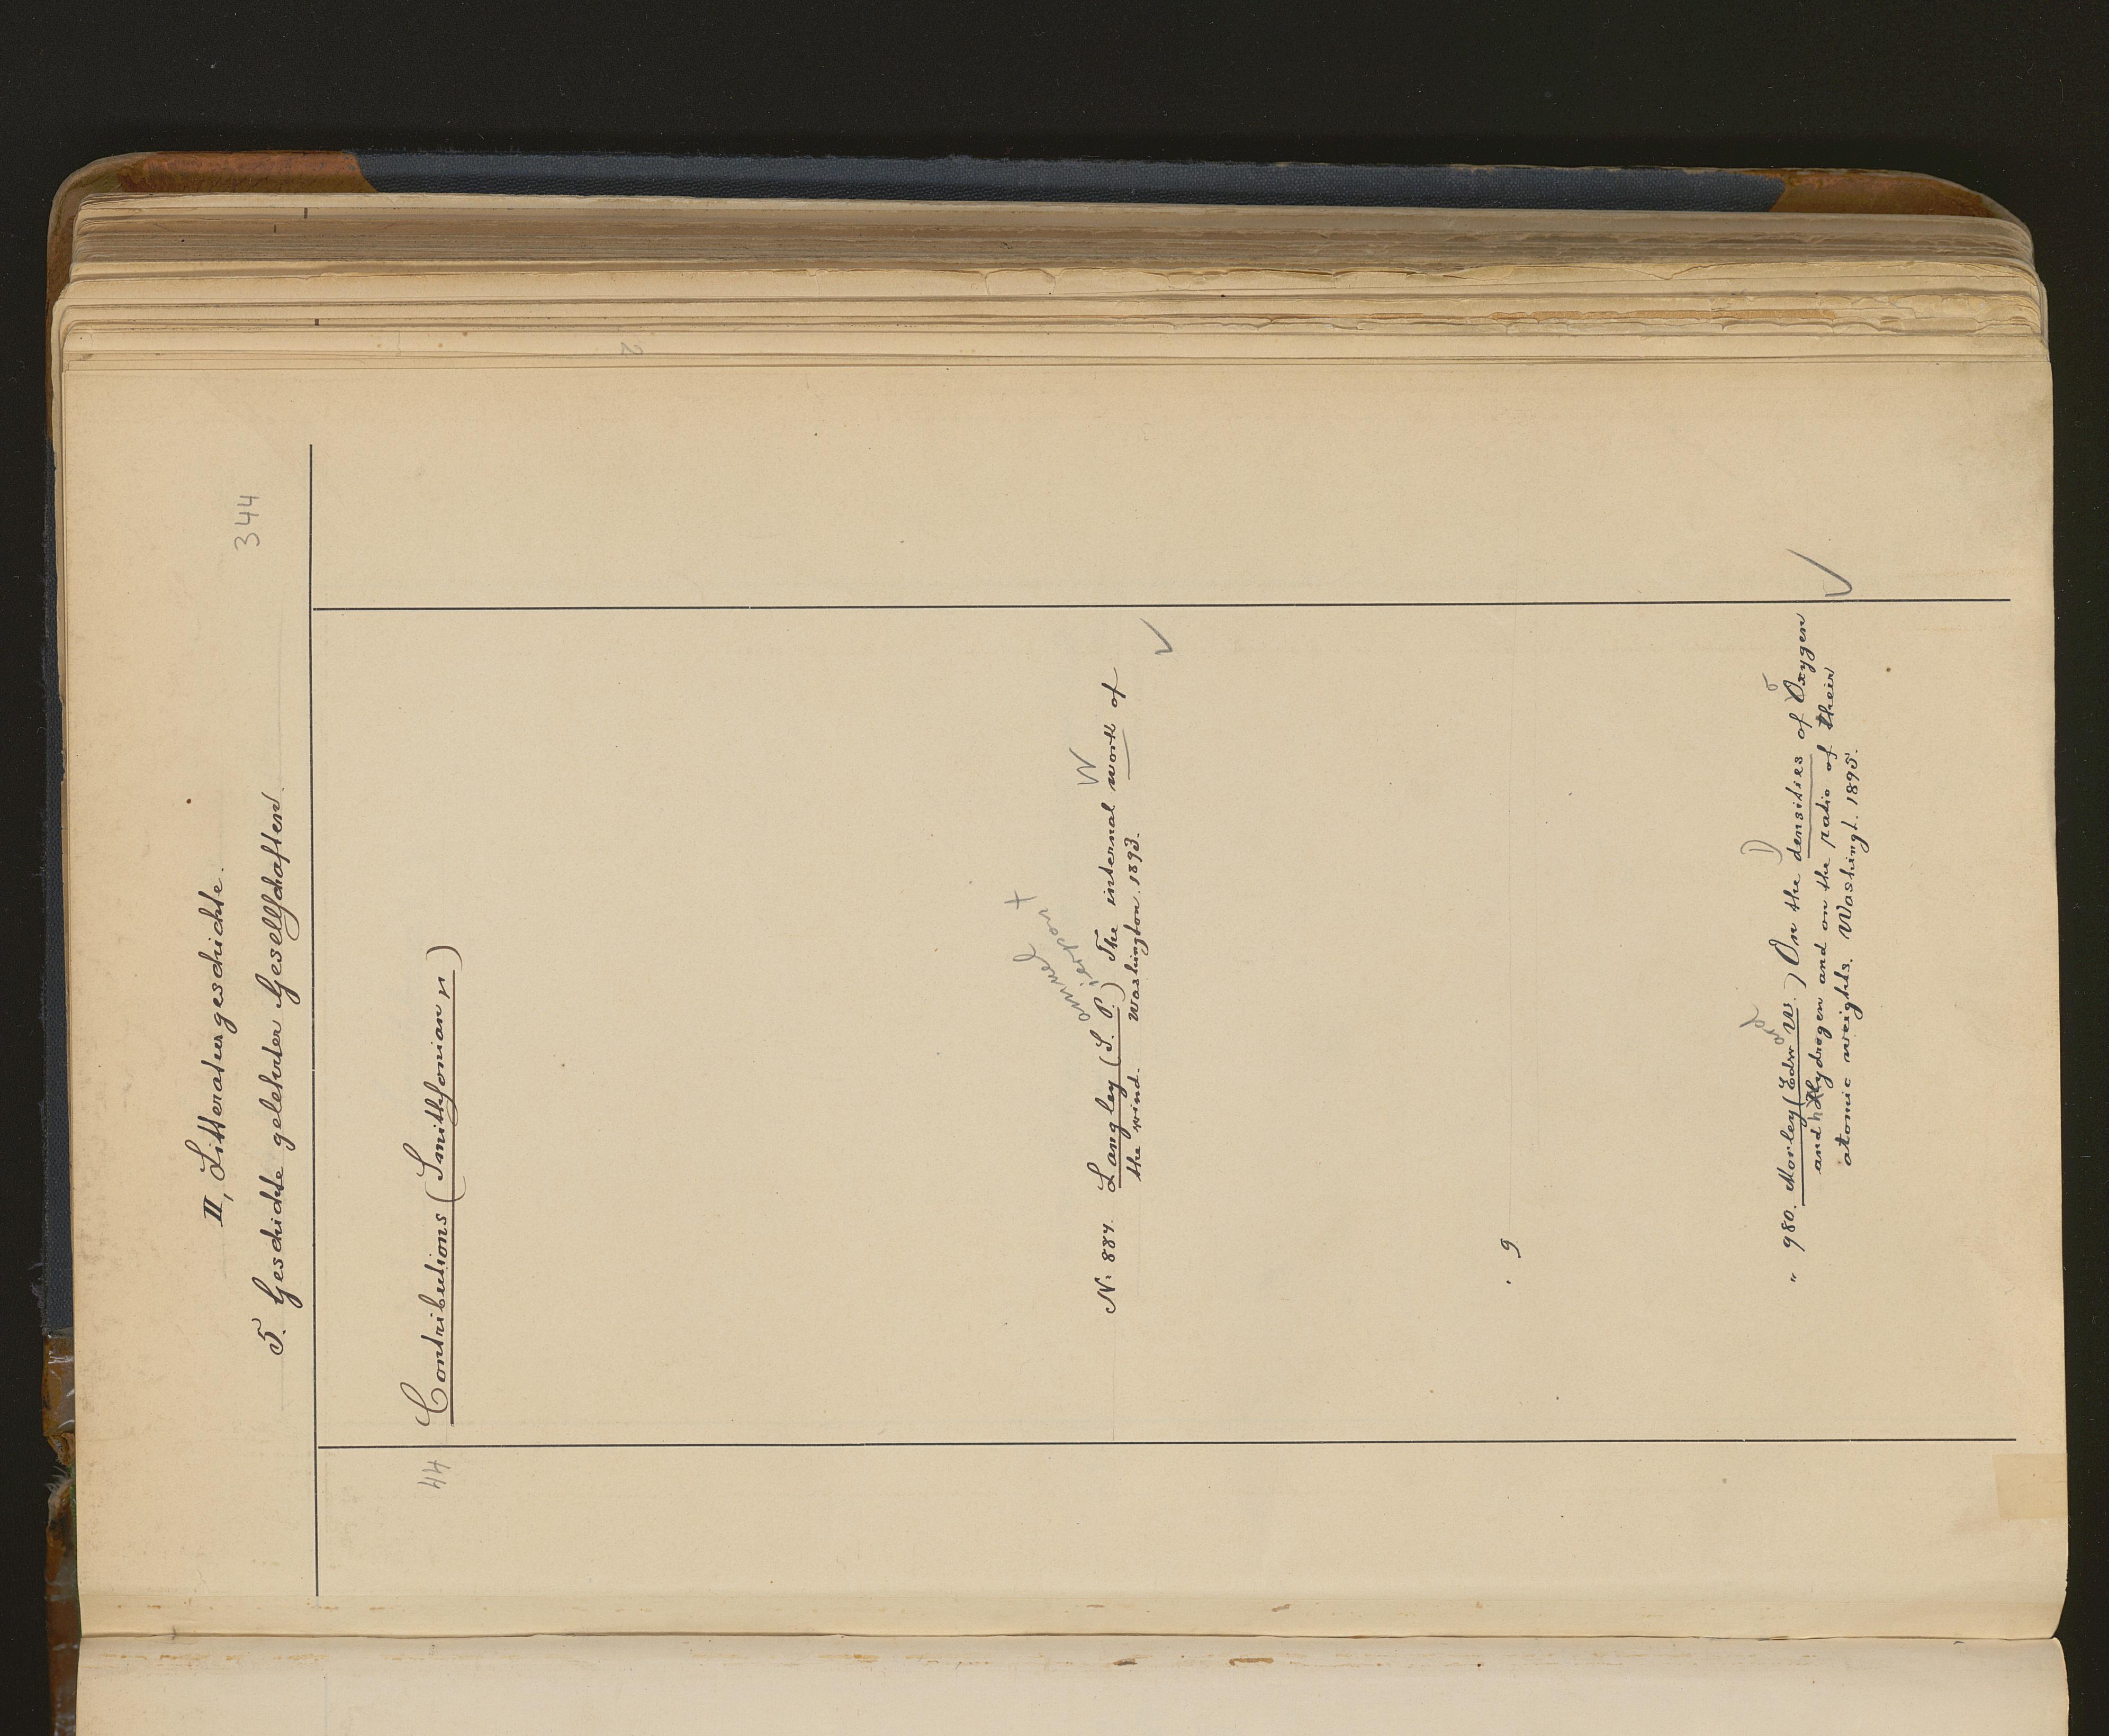 344
II, Litteraturgeschichte.
5. Geschichte gelehrter Gesellschaften.
44 Contributions (Smithsonian)
amuel
ierpont +
W
N: 884. Langley (S. P.) The internal work of
the wind. Washington. 1893.
9
ard D o
" 980. Morley (Edw W.) On the densities of Oxygen
and Hydrogen and on the ratio of their
atomic weights. Washingt. 1895.